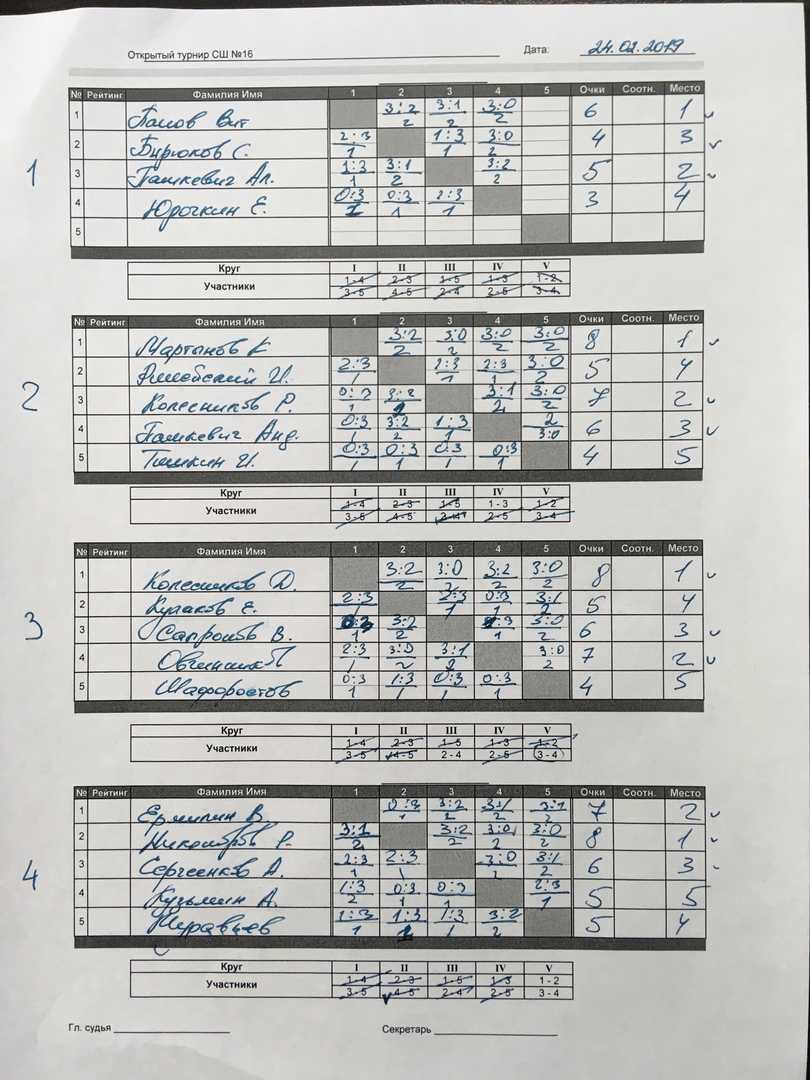 Открытый турнир СШ №16 Дата: 24.02.2019
№ Рейтинг Фамилия Имя 1 2 3 4 5 Очки Соотн. Место
1
1 Панов Вит 3:2 3:1 3:0 6 1
2 2 2
2 Бирюков С. 2:3 1:3 3:0 4 3
1 1 2
3 Пашкевич Ал. 1:3 3:1 3:2 5 2
1 2 2
4 Юрочкин Е. 0:3 0:3 2:3 3 4
1 1
5
Круг I II III IV V
Участники 1-4 2-3 1-5 1-3 1-2
3-5 4-5 2-4 2-5 3-4
№ Рейтинг Фамилия Имя 1 2 3 4 5 Очки Соотн. Место
2
1 Мартынов К 3:2 3:0 3:0 3:0 8 1
2 2 2 2
2 И. 2:3 2:3 2:3 3:0 5 4
1 1 1 2
3 Колесников Р. 3:1 3:0 7 2
1 2 2 2
4 Пашкевич Анд. 0:3 3:2 1:3 2 6 3
1 2 1 3:0
5 Тишкин И. 0:3 0:3 0:3 0:3 4 5
1 1 1 1
Круг I II III IV V
Участники 1-4 2-3 1-5 1-3 1-2
3-5 4-5 2-4 2-5 3-4
№ Рейтинг Фамилия Имя 1 2 3 4 5 Очки Соотн. Место
3
1 Колесников Д. 3:2 3:0 3:2 3:0 8 1
2 2 2 2
2 Кулаков Е. 2:3 2:3 0:3 3:1 5 4
1 1 1 2
3 Сапронов В. 0:3 3:2 3:0 6 3
1 2 1 2
4 2:3 3:0 3:1 3:0 7 2
1 2 2 2
5 Шафоростов 0:3 1:3 0:3 0:3 4 5
1 1 1 1
Круг I II III IV V
Участники 1-4 2-3 1-5 1-3 1-2
3-5 4-5 2-4 2-5 3-4
№ Рейтинг Фамилия Имя 1 2 3 4 5 Очки Соотн. Место
4
1 Ермилин В. 3:2 3:1 3:1 7 2
1 2 2 2
2 Р. 3:1 3:2 3:0 3:0 8 1
2 2 2 2
3 Сергеенков А. 2:3 2:3 3:0 3:1 6 3
1 1 2 2
4 Кузьмин А. 1:3 0:3 0:3 2:3 5 5
2 1 1 1
5 Муравьев 1:3 1:3 3:2 5 4
1 1 1 2
Круг I II III IV V
Участники 1-4 2-3 1-5 1-3 1-2
3-5 4-5 2-4 2-5 3-4
Гл. судья Секретарь